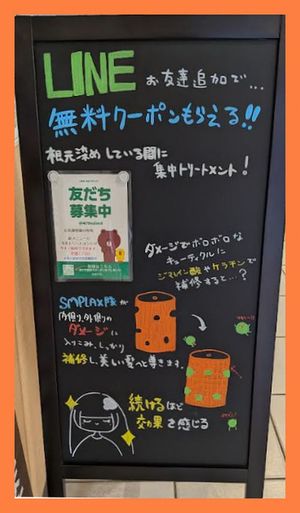 LINE お友達追加で…
無料クーポンもらえる!!
根元染めしている間に
集中トリートメント!
友だち
募集中
ダメージでボロボロな
キューティクルに
ジマレイン酸やケラチンで
補修すると…?
SMPLAX隊が
内側り、外側りの
ダメージに
入りこみ、しっかり
補修し、美しい髪へと導きます。
続けるほど
効果を感じる